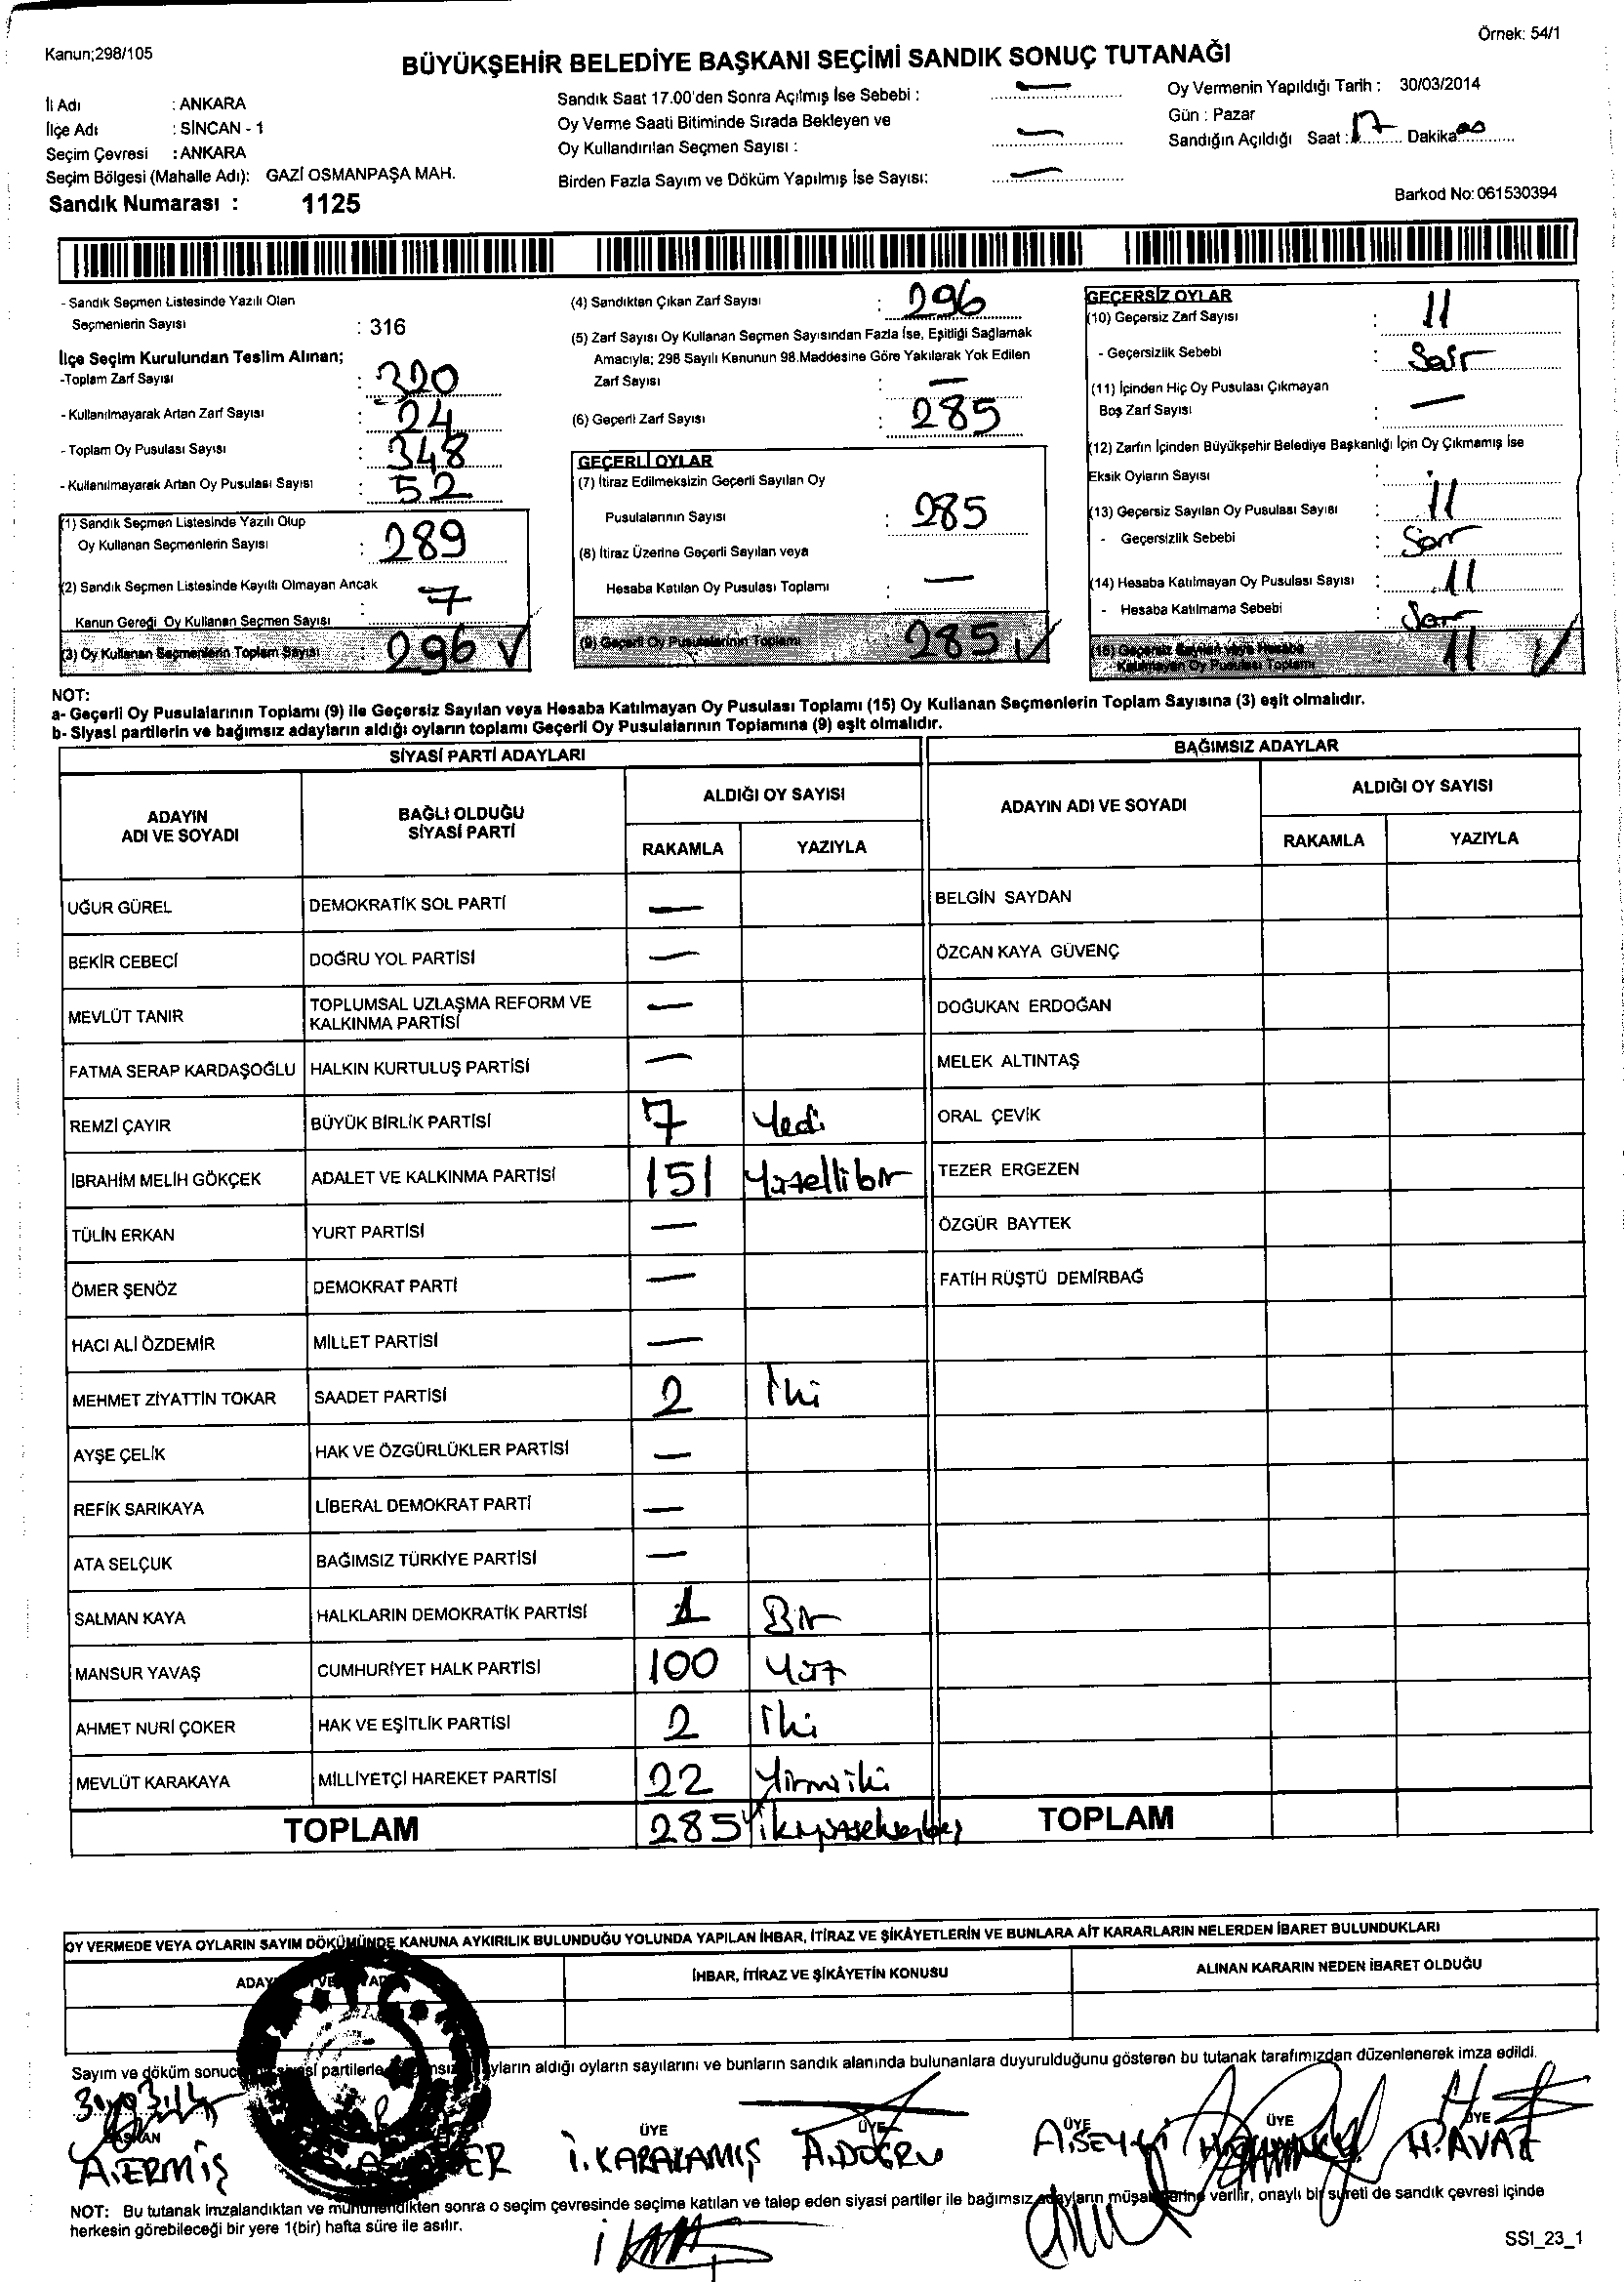 Örnek: 54/1
Kanun;298/105
BÜYÜKŞEHİR BELEDİYE BAŞKANI SEÇİMİ SANDIK SONUÇ TUTANAĞI
İl Adı : ANKARA
İlçe Adı : SİNCAN - 1
Seçim Çevresi : ANKARA
Seçim Bölgesi (Mahalle Adı): GAZİ OSMANPAŞA MAH.
Sandık Numarası : 1125
Sandık Saat 17.00'den Sonra Açılmış İse Sebebi : —
Oy Verme Saati Bitiminde Sırada Bekleyen ve
Oy Kullandırılan Seçmen Sayısı : —
Birden Fazla Sayım ve Döküm Yapılmış İse Sayısı: —
Oy Vermenin Yapıldığı Tarih : 30/03/2014
Gün : Pazar
Sandığın Açıldığı Saat : 17 Dakika 00
Barkod No: 061530394
- Sandık Seçmen Listesinde Yazılı Olan
Seçmenlerin Sayısı : 316
İlçe Seçim Kurulundan Teslim Alınan;
-Toplam Zarf Sayısı : 320
- Kullanılmayarak Artan Zarf Sayısı : 24
- Toplam Oy Pusulası Sayısı : 348
- Kullanılmayarak Artan Oy Pusulası Sayısı : 52
(1) Sandık Seçmen Listesinde Yazılı Olup
Oy Kullanan Seçmenlerin Sayısı : 289
(2) Sandık Seçmen Listesinde Kayıtlı Olmayan Ancak
Kanun Gereği Oy Kullanan Seçmen Sayısı : 7
(3) Oy Kullanan Seçmenlerin Toplam Sayısı : 296
(4) Sandıktan Çıkan Zarf Sayısı : 296
(5) Zarf Sayısı Oy Kullanan Seçmen Sayısından Fazla İse, Eşitliği Sağlamak
Amacıyla; 298 Sayılı Kanunun 98.Maddesine Göre Yakılarak Yok Edilen
Zarf Sayısı : —
(6) Geçerli Zarf Sayısı : 285
GEÇERLİ OYLAR
(7) İtiraz Edilmeksizin Geçerli Sayılan Oy
Pusulalarının Sayısı : 285
(8) İtiraz Üzerine Geçerli Sayılan veya
Hesaba Katılan Oy Pusulası Toplamı : —
(9) Geçerli Oy Pusulalarının Toplamı 285
GEÇERSİZ OYLAR
(10) Geçersiz Zarf Sayısı : 11
- Geçersizlik Sebebi :
(11) İçinden Hiç Oy Pusulası Çıkmayan
Boş Zarf Sayısı : —
(12) Zarfın İçinden Büyükşehir Belediye Başkanlığı İçin Oy Çıkmamış İse
Eksik Oyların Sayısı :
(13) Geçersiz Sayılan Oy Pusulası Sayısı : 11
- Geçersizlik Sebebi :
(14) Hesaba Katılmayan Oy Pusulası Sayısı : 11
- Hesaba Katılmama Sebebi :
(15) Geçersiz Sayılan veya Hesaba
Katılmayan Oy Pusulası Toplamı 11
NOT:
a- Geçerli Oy Pusulalarının Toplamı (9) ile Geçersiz Sayılan veya Hesaba Katılmayan Oy Pusulası Toplamı (15) Oy Kullanan Seçmenlerin Toplam Sayısına (3) eşit olmalıdır.
b- Siyasi partilerin ve bağımsız adayların aldığı oyların toplamı Geçerli Oy Pusulalarının Toplamına (9) eşit olmalıdır.
SİYASİ PARTİ ADAYLARI
ADAYIN ADI VE SOYADI
BAĞLI OLDUĞU SİYASİ PARTİ
ALDIĞI OY SAYISI
RAKAMLA YAZIYLA
UĞUR GÜREL DEMOKRATİK SOL PARTİ —
BEKİR CEBECİ DOĞRU YOL PARTİSİ —
MEVLÜT TANIR TOPLUMSAL UZLAŞMA REFORM VE KALKINMA PARTİSİ —
FATMA SERAP KARDAŞOĞLU HALKIN KURTULUŞ PARTİSİ —
REMZİ ÇAYIR BÜYÜK BİRLİK PARTİSİ 7 Yedi
İBRAHİM MELİH GÖKÇEK ADALET VE KALKINMA PARTİSİ 151 Yüzellibir
TÜLİN ERKAN YURT PARTİSİ —
ÖMER ŞENÖZ DEMOKRAT PARTİ —
HACI ALİ ÖZDEMİR MİLLET PARTİSİ —
MEHMET ZİYATTİN TOKAR SAADET PARTİSİ 2 İki
AYŞE ÇELİK HAK VE ÖZGÜRLÜKLER PARTİSİ —
REFİK SARIKAYA LİBERAL DEMOKRAT PARTİ —
ATA SELÇUK BAĞIMSIZ TÜRKİYE PARTİSİ —
SALMAN KAYA HALKLARIN DEMOKRATİK PARTİSİ 1 Bir
MANSUR YAVAŞ CUMHURİYET HALK PARTİSİ 100 Yüz
AHMET NURİ ÇOKER HAK VE EŞİTLİK PARTİSİ 2 İki
MEVLÜT KARAKAYA MİLLİYETÇİ HAREKET PARTİSİ 22 Yirmiiki
TOPLAM 285 ikiyüzseksenbeş
BAĞIMSIZ ADAYLAR
ADAYIN ADI VE SOYADI
ALDIĞI OY SAYISI
RAKAMLA YAZIYLA
BELGİN SAYDAN
ÖZCAN KAYA GÜVENÇ
DOĞUKAN ERDOĞAN
MELEK ALTINTAŞ
ORAL ÇEVİK
TEZER ERGEZEN
ÖZGÜR BAYTEK
FATİH RÜŞTÜ DEMİRBAĞ
TOPLAM
OY VERMEDE VEYA OYLARIN SAYIM DÖKÜMÜNDE KANUNA AYKIRILIK BULUNDUĞU YOLUNDA YAPILAN İHBAR, İTİRAZ VE ŞİKÂYETLERİN VE BUNLARA AİT KARARLARIN NELERDEN İBARET BULUNDUKLARI
İHBAR, İTİRAZ VE ŞİKÂYETİN KONUSU
ALINAN KARARIN NEDEN İBARET OLDUĞU
Sayım ve döküm partilerle aldığı oyların sayılarını ve bunların sandık alanında bulunanlara duyurulduğunu gösteren bu tutanak tarafımızdan düzenlenerek imza edildi.
BAŞKAN ÜYE ÜYE ÜYE ÜYE ÜYE
A.ERMİŞ İ.KARAKAMIŞ A.DOĞRU H.AVAZ
NOT: Bu tutanak imzalandıktan ve mühürlendikten sonra o seçim çevresinde seçime katılan ve talep eden siyasi partiler ile bağımsız adayların müşahitlerine verilir, onaylı bir sureti de sandık çevresi içinde
herkesin görebileceği bir yere 1(bir) hafta süre ile asılır.
SSI_23_1